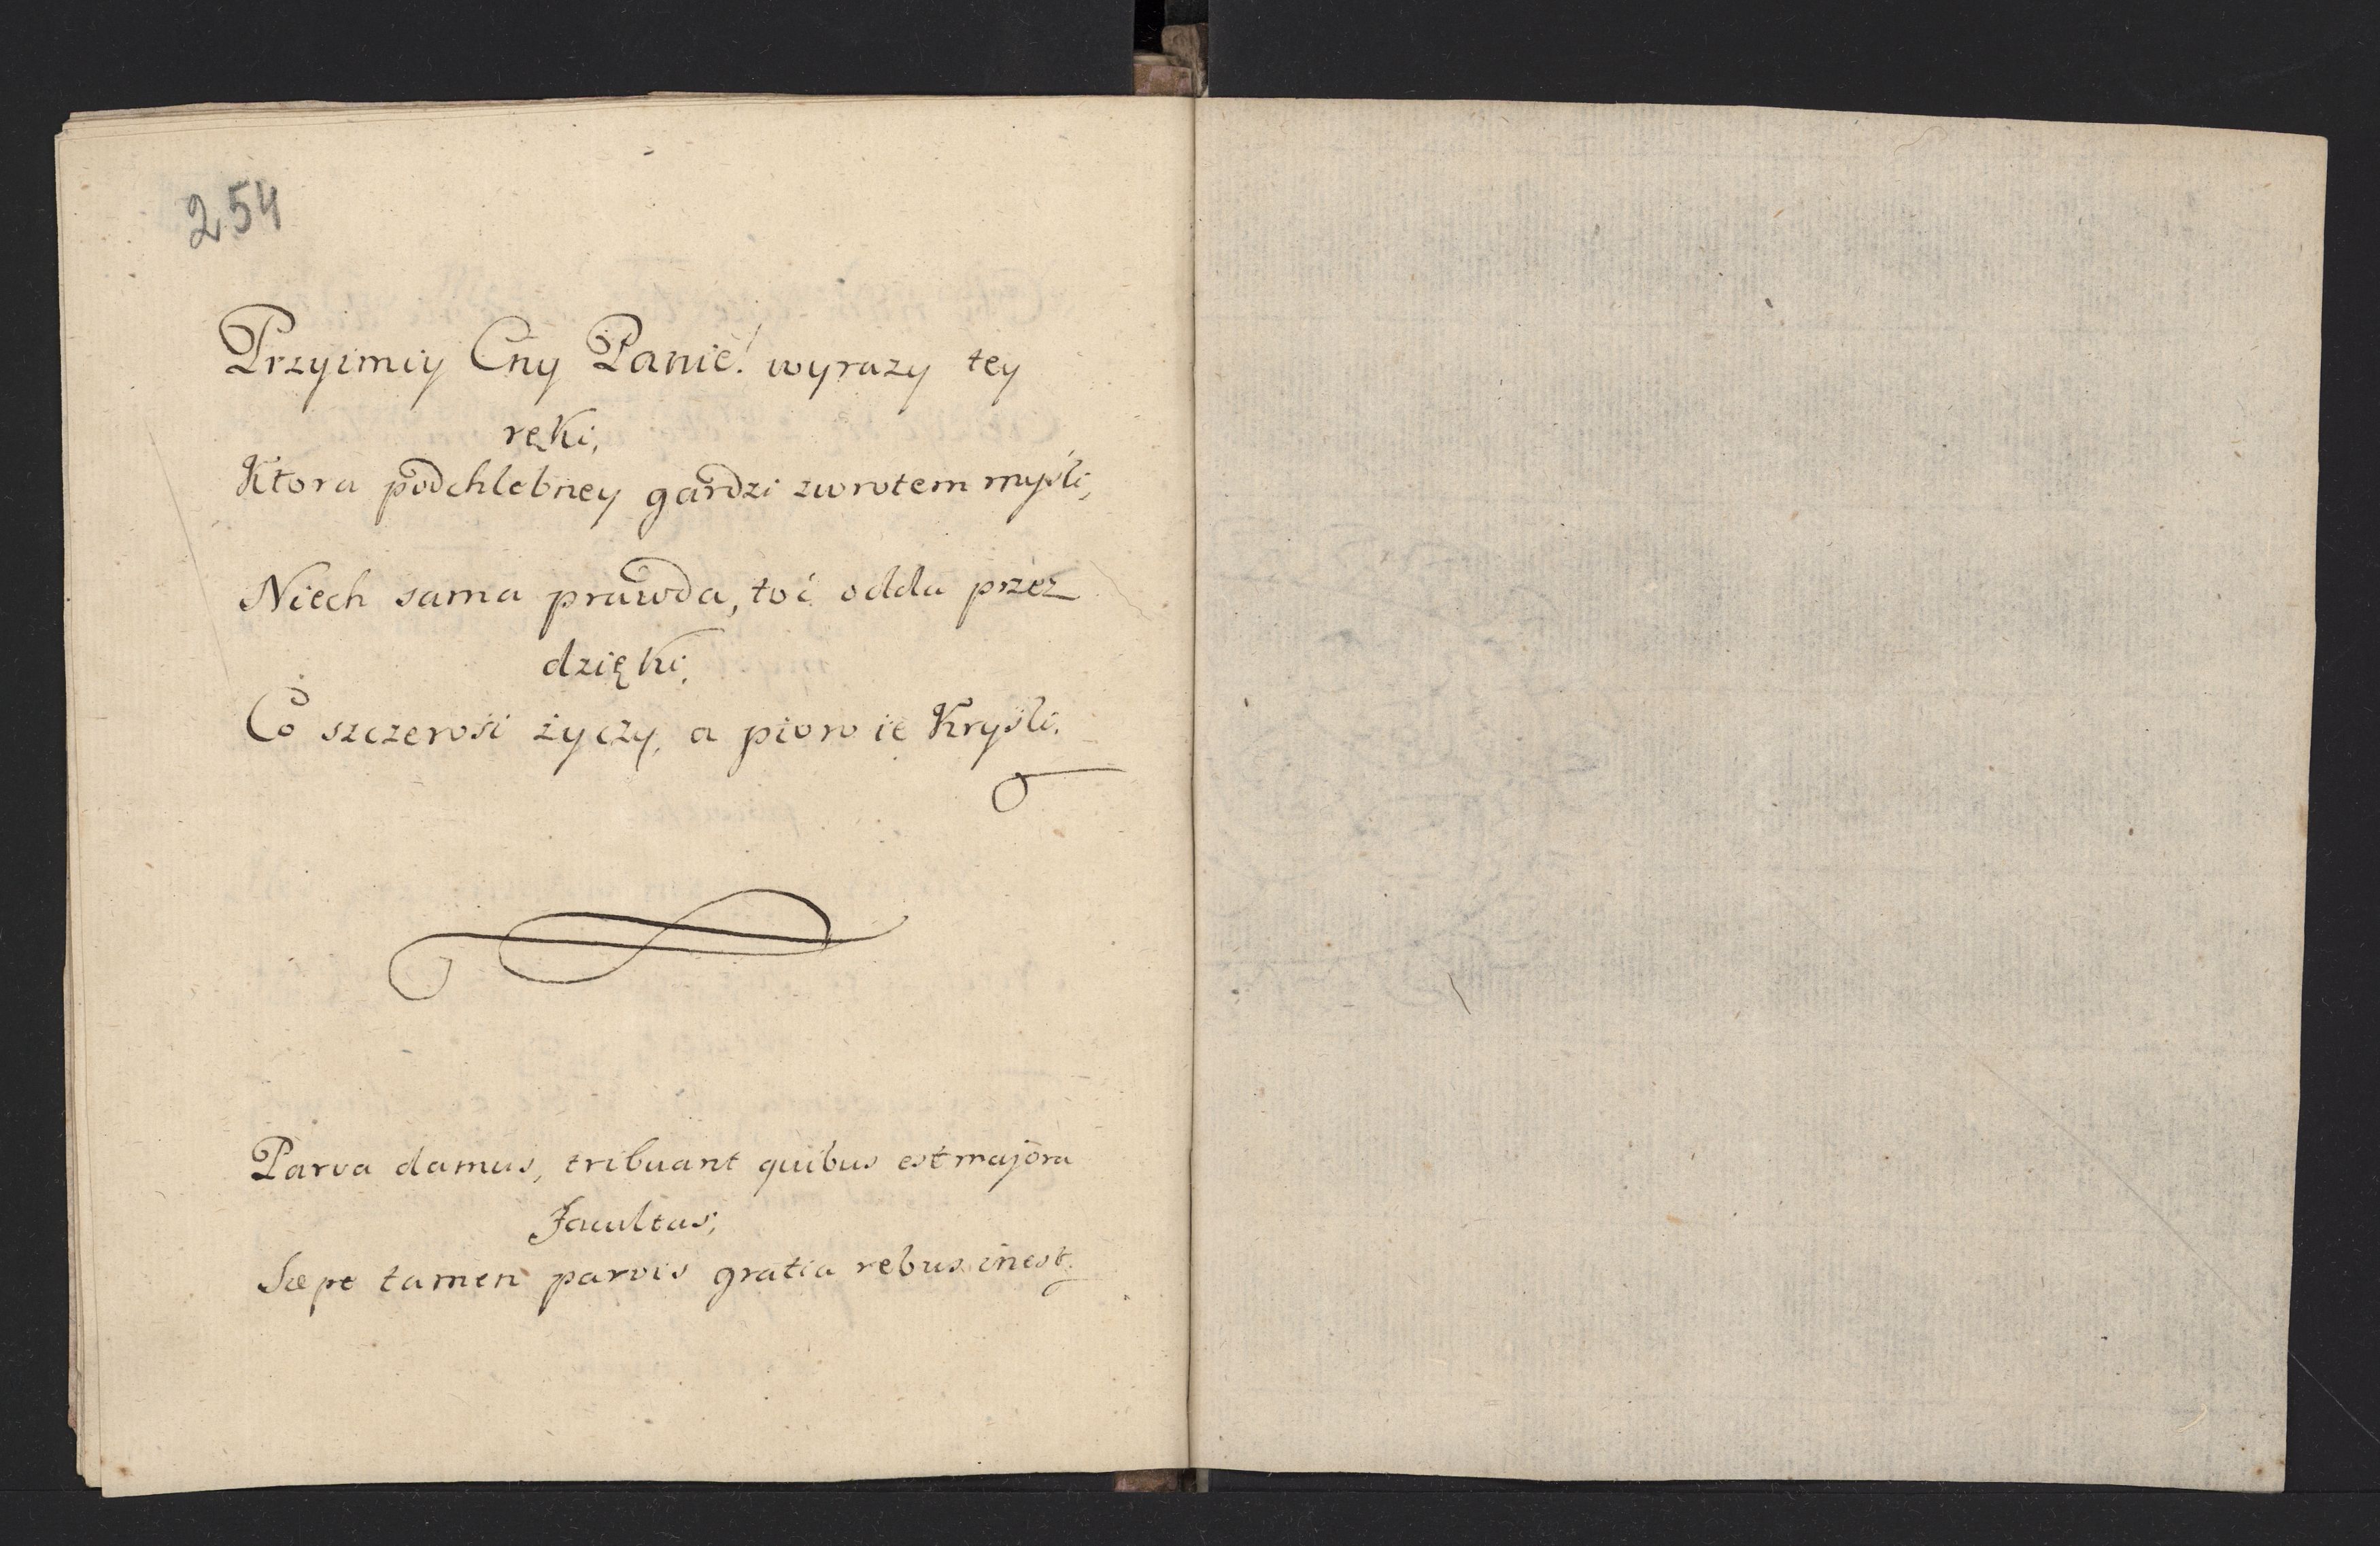 254
Przyimiy Cny Panie! wyrazy tey
ręki,
Ktora podchlebney gardzi zwrotem myśli,
Niech sama prawda, toć odda przez
dzięki,
Co szczerość życzy, a pioro ie Kryśli.
Parva damus, tribuant quibus est majora
Facultas;
Sæpe tamen parvis gratia rebus inest.